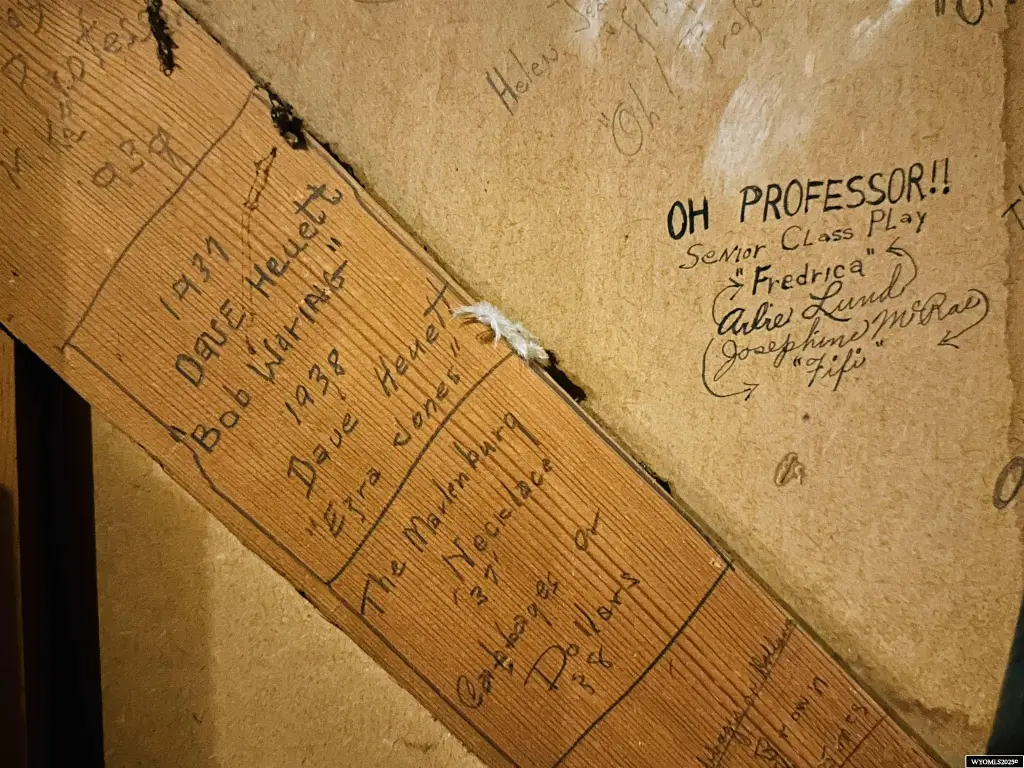 Helen
"Oh!
OH PROFESSOR!!
Senior Class Play
"Fredrica"
Arlie Lund
Josephine McRae
"Fifi"
1937
Dave Hewett
"Bob Waring"
1938
Dave Hewett
"Ezra Jones"
The Marlenburg
Necklace
'37
Cabbages or
Dollars
38
Brown
James
WYOMLS2025©